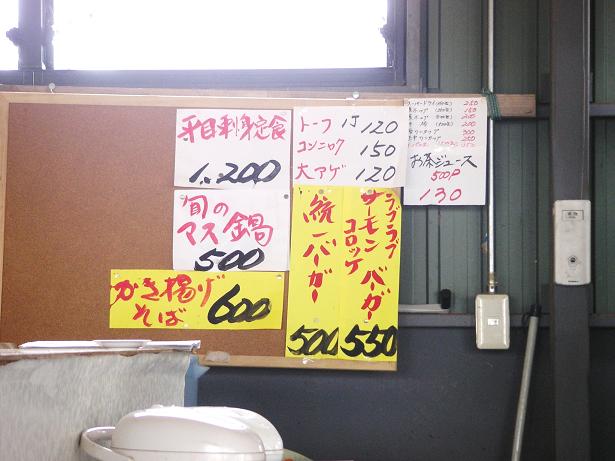 平目刺身定食
1,200
旬の
マス鍋
500
かき揚げ
そば
600
トーフ 1丁 120
コンニャク 150
大アゲ 120
統一バーガー
500
ラブラブ
サーモンバーガー
コロッケ
550
250
150
200
200
300
250
お茶ジュース
500P
130